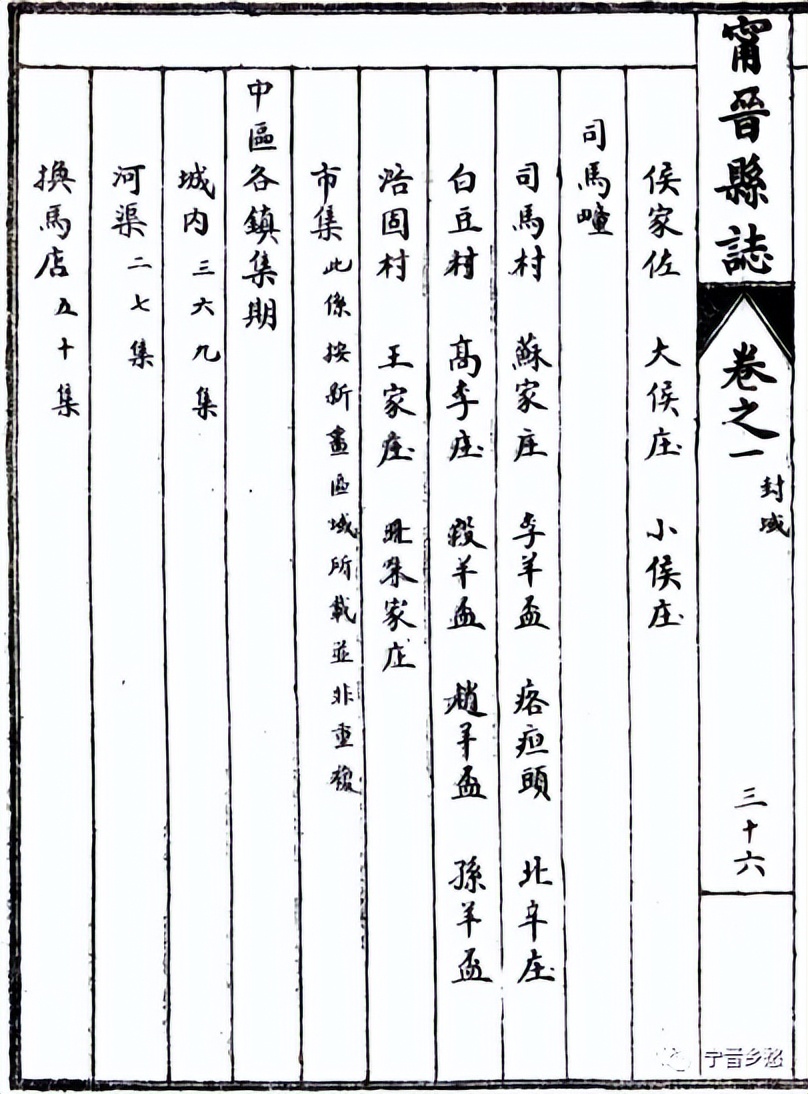 甯晉縣誌
卷之一
封域
三十六
侯家佐 大侯庄 小侯庄
司馬疃
司馬村 蘇家庄 李羊盃 疸頭 北辛庄
白豆村 高李庄 段羊盃 趙羊盃 孫羊盃
浩固村 王家庄 北朱家庄
市集 此係按新畫區域所載並非重複
中區各鎮集期
城内 三六九集
河渠 二七集
換馬店 五十集
宁晋乡愁